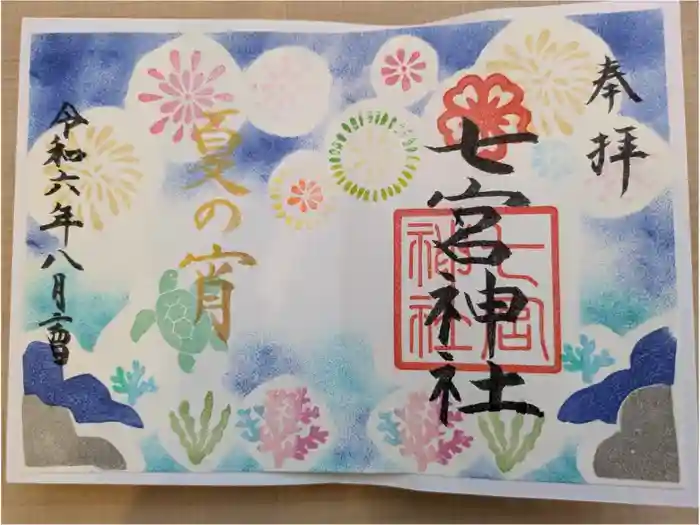 奉拝
七宮神社
七宮神社
夏の宵
令和六年八月二四日